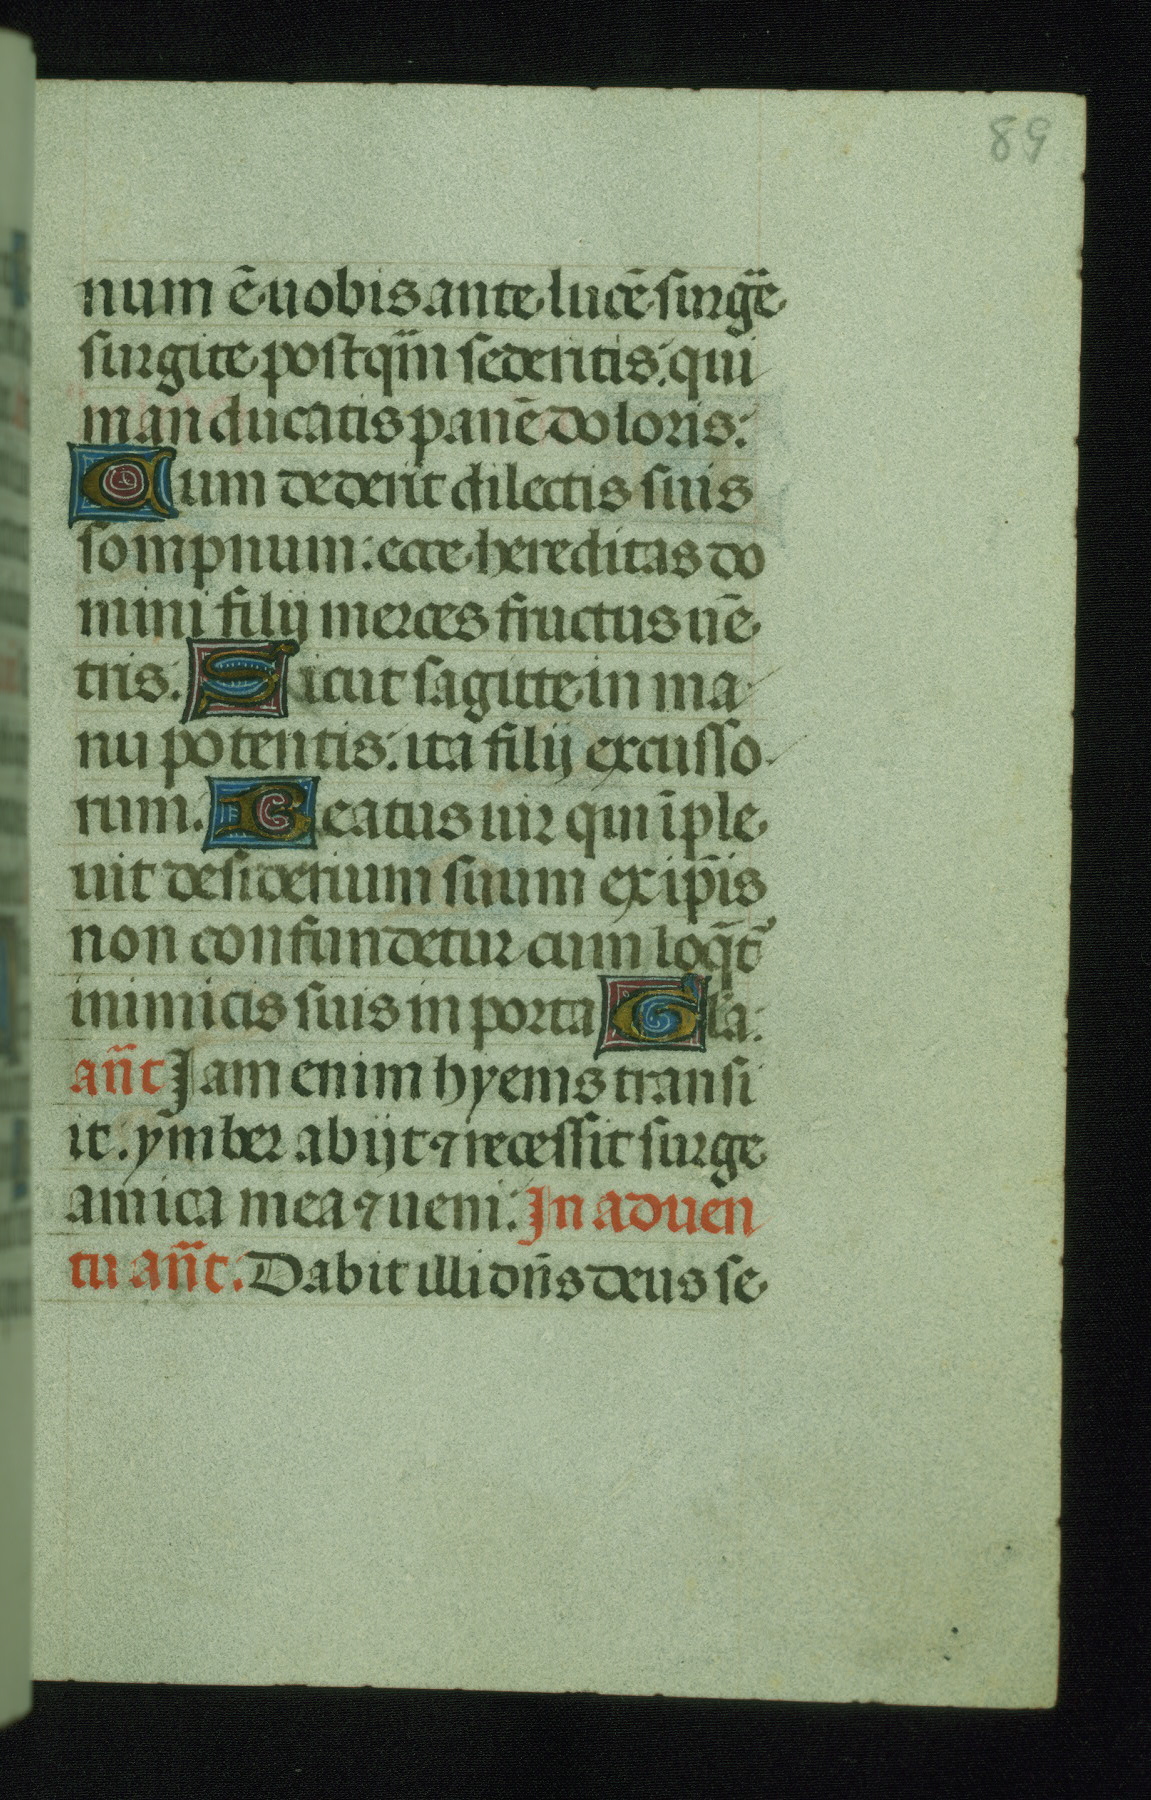 89
num ē uobis ante lucē surgr̄e
surgite postq̄m sederitis: qui
manducatis panē doloris:
Cum dederit dilectis suis
sompnum: ecce hereditas do
mini filij merces fructus uē
tris. Sicut sagitte in ma
nu potentis: ita filij excusso
rum. Beatus uir qui īple
uit desiderium suum ex ip̄is
non confundetur cum loq̄t᷑
inimicis suis in porta Gla:
an̄t Jam enim hyems transi
it. ȳmber abijt ⁊ recessit surge
amica mea ⁊ ueni: In aduen
tu an̄t. Dabit illi dn̄s deus se